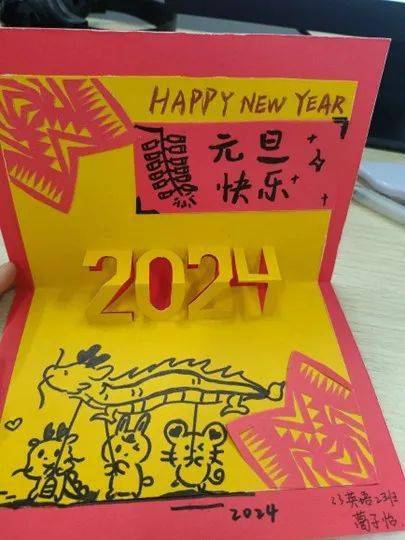 HAPPY NEW YEAR
元旦
快乐
2024
2024
23英语2班
蔺子怡